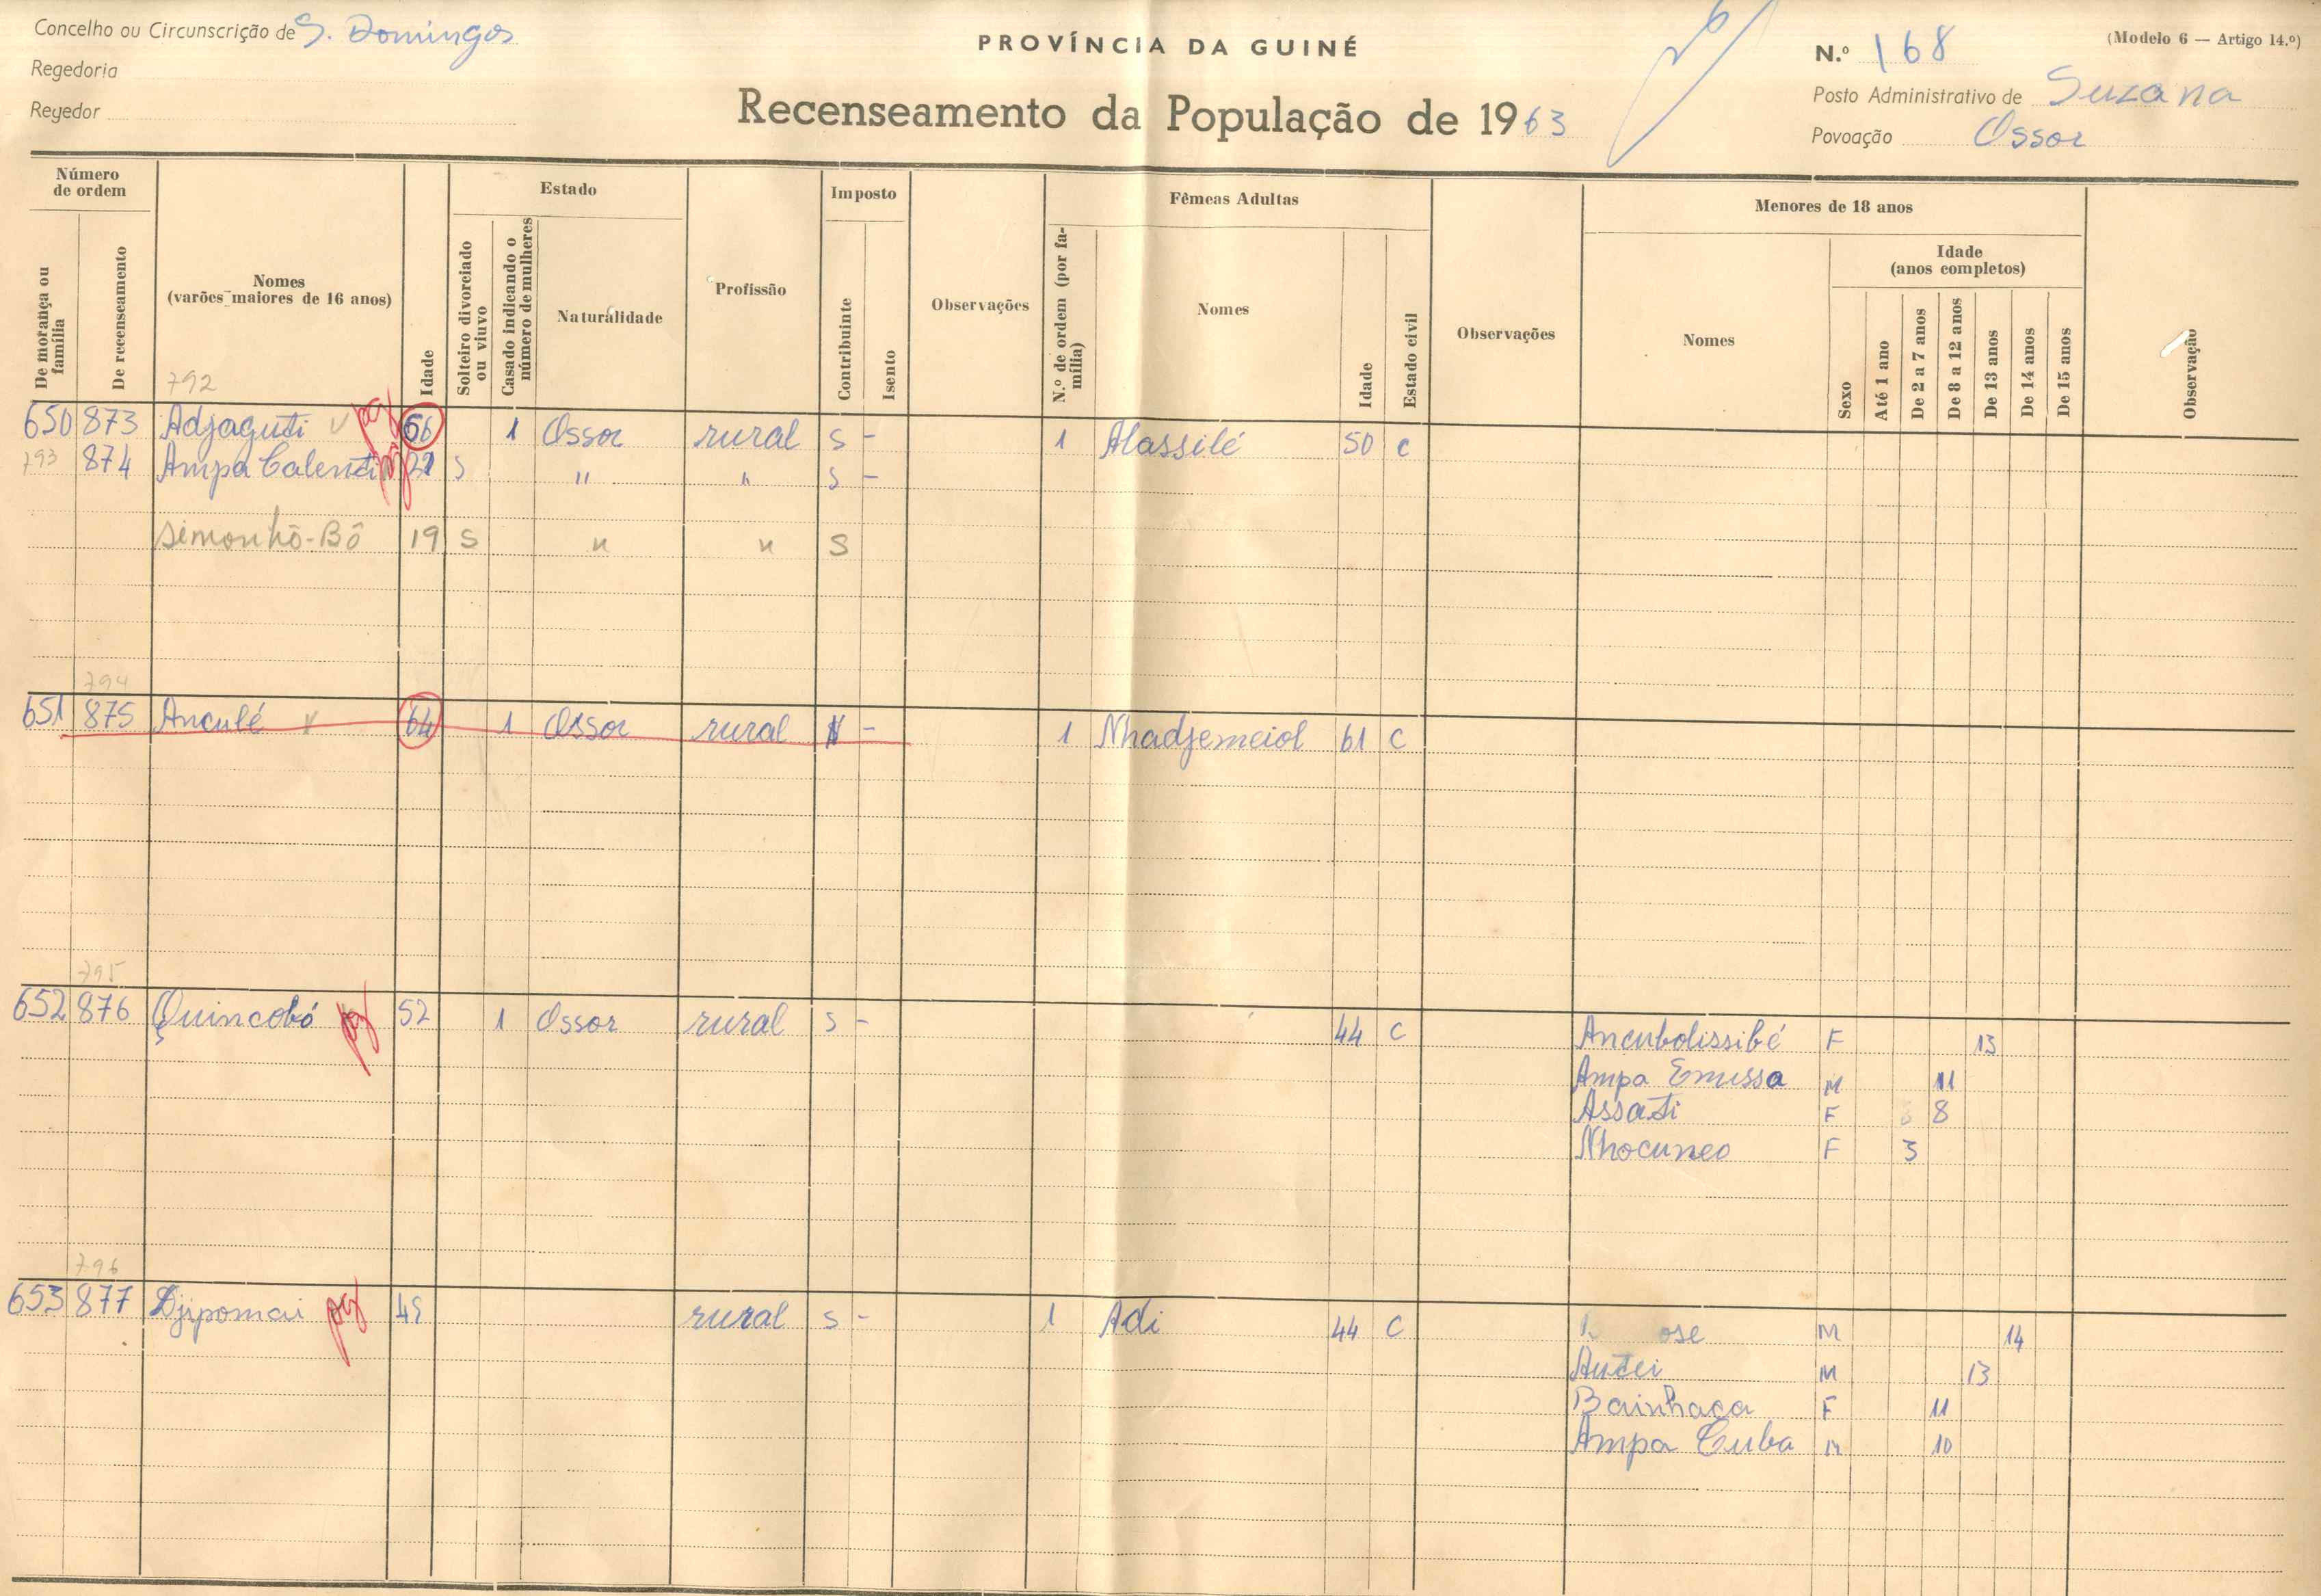 Concelho ou Circunscrição de S. Domingos
PROVÍNCIA DA GUINÉ
N.º 168
(Modelo 6 — Artigo 14.º)
Regedoria
Posto Administrativo de Suzana
Regedor
Recenseamento da População de 1963
Povoação Ossor
Número de ordem
Estado
Imposto
Fêmeas Adultas
Menores de 18 anos
De morança ou família
De recenseamento
Nomes (varões maiores de 16 anos)
Idade
Solteiro divorciado ou viuvo
Casado indicando o número de mulheres
Naturalidade
Profissão
Contribuinte
Isento
Observações
N.º de ordem (por família)
Nomes
Idade
Estado civil
Observações
Nomes
Sexo
Idade (anos completos)
Até 1 ano
De 2 a 7 anos
De 8 a 12 anos
De 13 anos
De 14 anos
De 15 anos
Observação
792
650 873 Adjaguti pg 1 Ossor rural S - 1 Alassilé 50 C
793 874 Ampa Calenti pg S " " S -
Simonhô-Bô 19 S " " S
794
651 875 Anculé 64 1 Ossor rural - 1 Nhadjemeiol 61 C
795
652 876 Quincobó pg 52 1 Ossor rural S - 44 C Ancubolissibé F 13
Ampa Emussa M 11
Assati F 8
Nhocuneo F 3
796
653 877 Djipomai pg 49 rural S - 1 Adi 44 C M 14
Autei M 13
Bainhaca F 11
Ampa Cuba M 10